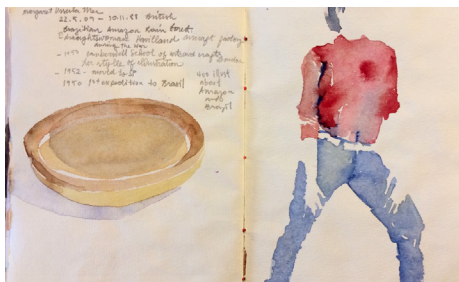 Margaret Ursula Mee
22.5.09 - 30.11.88 British
Brazilian Amazon Rain Forest.
- draughtswoman Havilland aircraft factory
during the War
- 1950 Camberwell School of
for style of illustration
- 1952 - moved to
1956 1st expedition to Brasil
400 illust
about
Amazon
and
Brazil